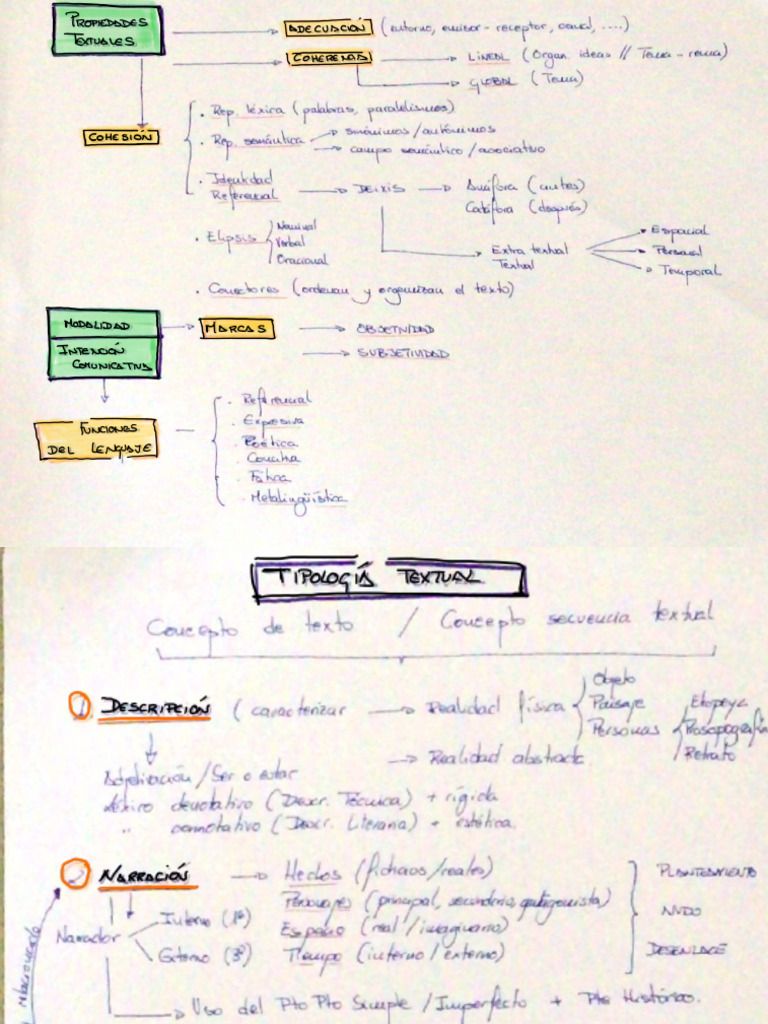 PROPIEDADES TEXTUALES
ADECUACIÓN (entorno, emisor-receptor, canal, ....)
COHERENCIA
LINEAL (Organ ideas // Tema-rema)
GLOBAL (Tema)
COHESIÓN
. Rep. léxica (palabras, paralelismos)
. Rep. semántica
sinónimos/antónimos
campo semántico/asociativo
. Identidad Referencial
DEIXIS
Anáfora (antes)
Catáfora (después)
. Elipsis
Nominal
Verbal
Oracional
Extra textual
Textual
Espacial
Personal
Temporal
. Conectores (ordenan y organizan el texto)
MODALIDAD
MARCAS
OBJETIVIDAD
INTENCIÓN COMUNICATIVA
SUBJETIVIDAD
FUNCIONES DEL LENGUAJE
. Referencial
. Expresiva
. Poética
. Conativa
. Fática
. Metalingüística
TIPOLOGÍA TEXTUAL
Concepto de texto / Concepto secuencia textual
1. DESCRIPCIÓN (caracterizar
Realidad física
Objeto
Paisaje
Personas
Etopeya
Prosopografía
Retrato
Realidad abstracta
Adjetivación/Ser o estar
Léxico denotativo (Descr. Técnica) + rígida
" connotativo (Descr. Literaria) + estética.
2. NARRACIÓN
Hechos (ficticios/reales)
Personajes (principal, secundario, antagonista)
Espacio (real/imaginario)
Tiempo (interno/externo)
PLANTEAMIENTO
NUDO
DESENLACE
Narrador
Interno (1ª)
Externo (3ª)
Uso del Pto Pto Simple/Imperfecto + Pte Histórico.